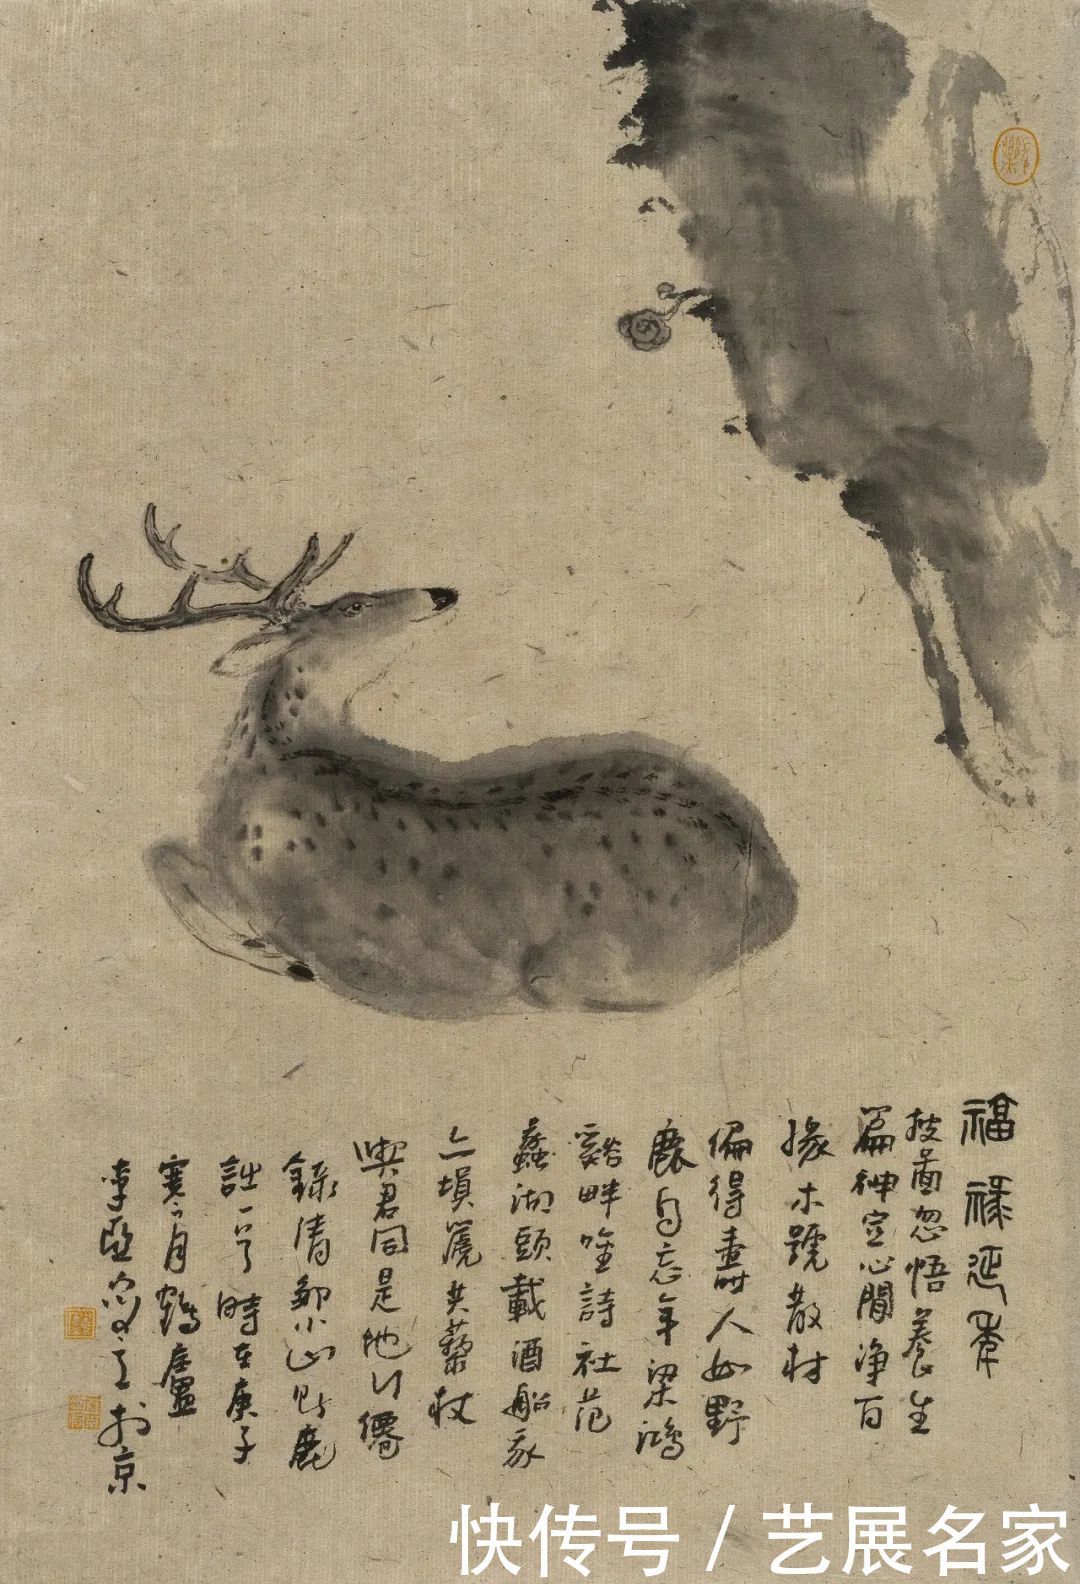 福祿延年
披圖忽悟養生
篇神定心閒淨百
緣木號散材
偏得壽世人如野
麋自忘年梁鴻
谿畔唫詩社范
蠡湖頭載酒船我
亦塤篪共藜杖
與君同是地行僊
錄清鄒小山題鹿
詩一首時在庚子
寒月鶴廬
李亞 於京
快传号 / 艺展名家